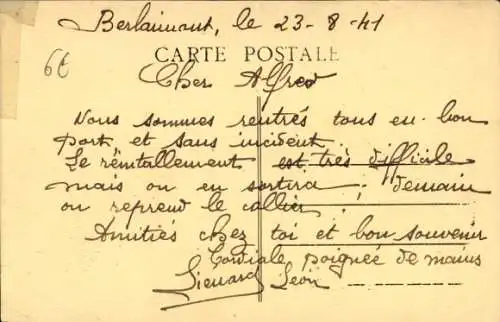 Berlaimont, le 23-8-41
CARTE POSTALE
6€
Cher Alfred
Nous sommes rentrés tous en bon
port et sans incident
Le réinstallement est très difficile
mais on en sortira ; demain
on reprend le collier !
Amitiés chez toi et bon souvenir
Cordiale poignée de mains
Lienard Léon